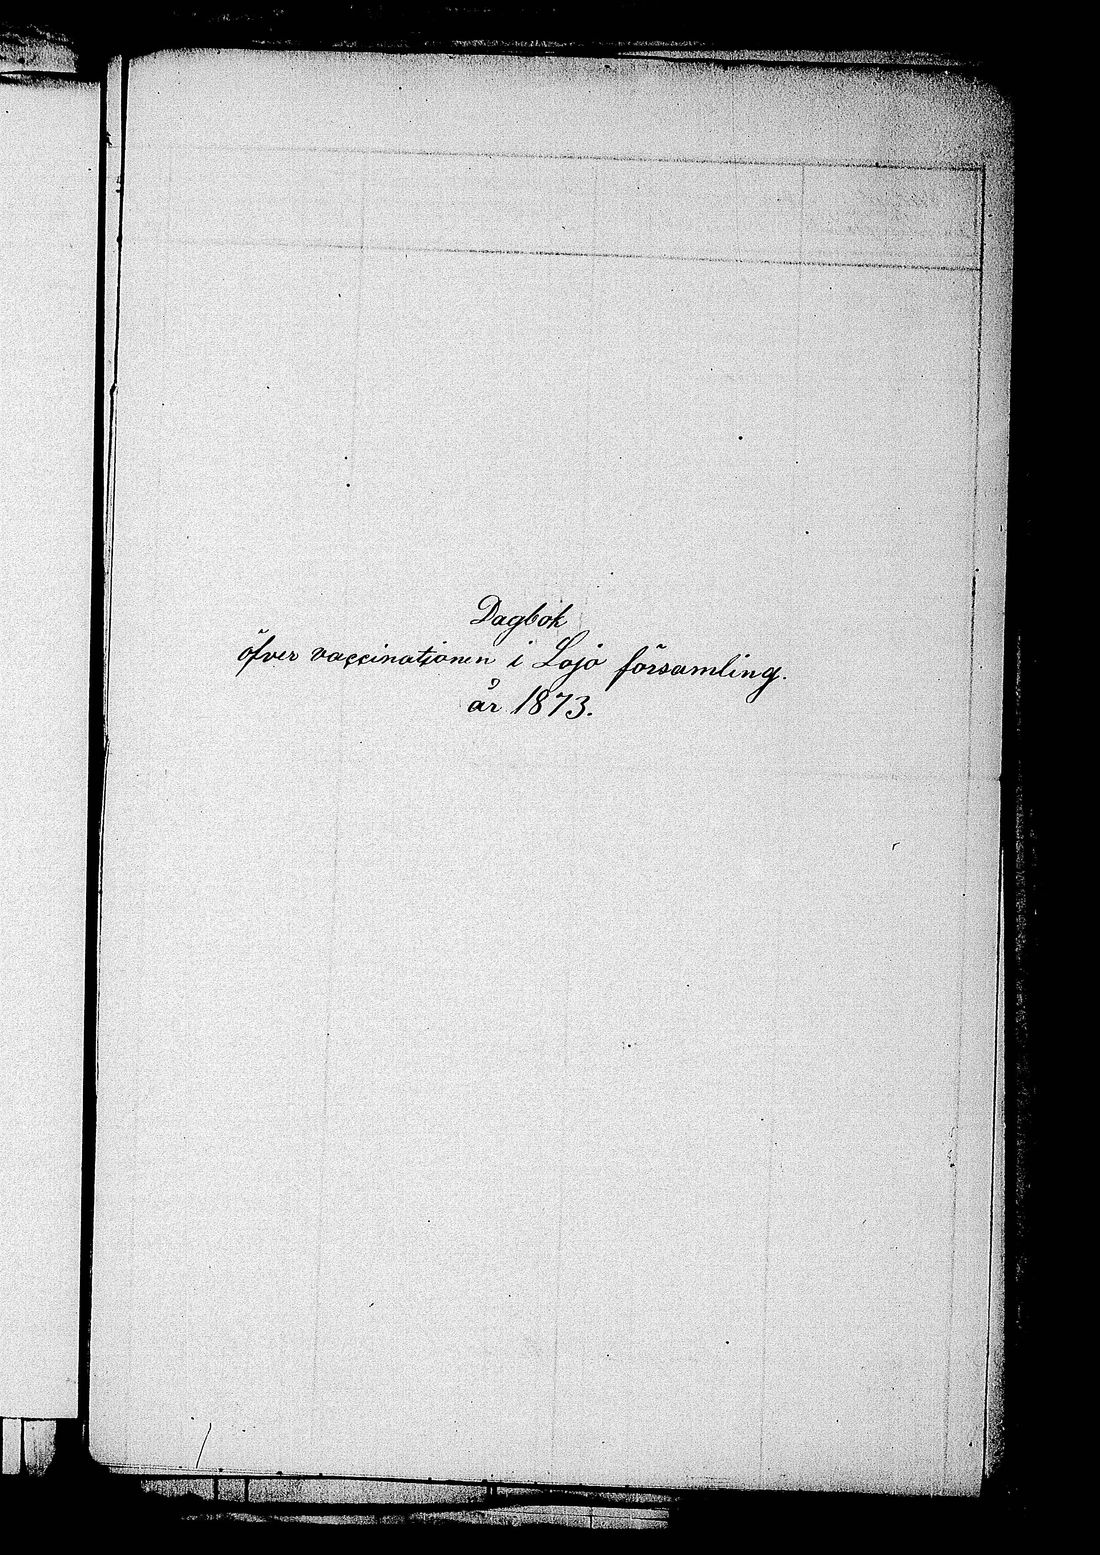 Dagbok
öfver vaccinationen i Lojo församling.
år 1873.